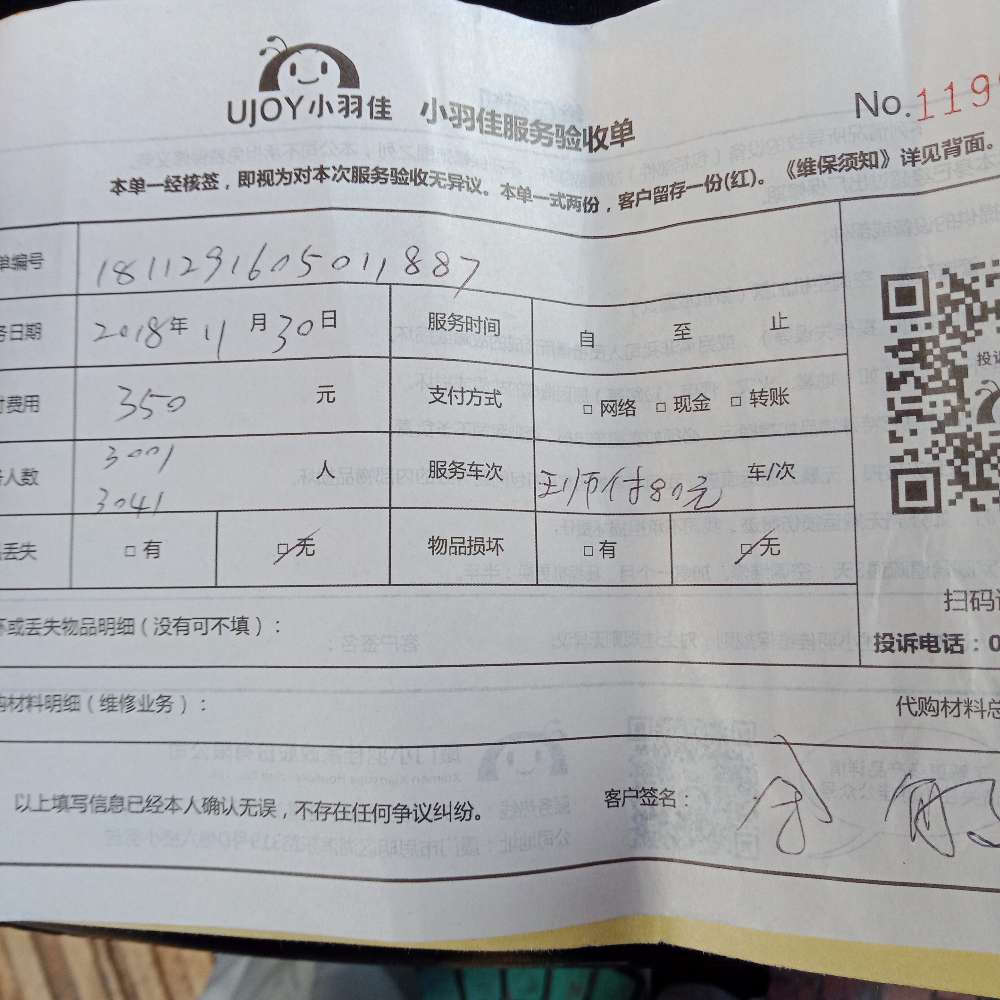 UJOY小羽佳 小羽佳服务验收单
No.119
本单一经核签，即视为对本次服务验收无异议。本单一式两份，客户留存一份(红)。《维保须知》详见背面。
单编号 1811291605011887
日期 2018年11月30日 服务时间 自 至 止
费用 350 元 支付方式 □网络 □现金 □转账
人数 3001 人 服务车次 王师付80元 车/次
3041
丢失 □有 □无 物品损坏 □有 □无
扫码
或丢失物品明细（没有可不填）：
投诉电话：0
材料明细（维修业务）：
代购材料总
以上填写信息已经本人确认无误，不存在任何争议纠纷。 客户签名：